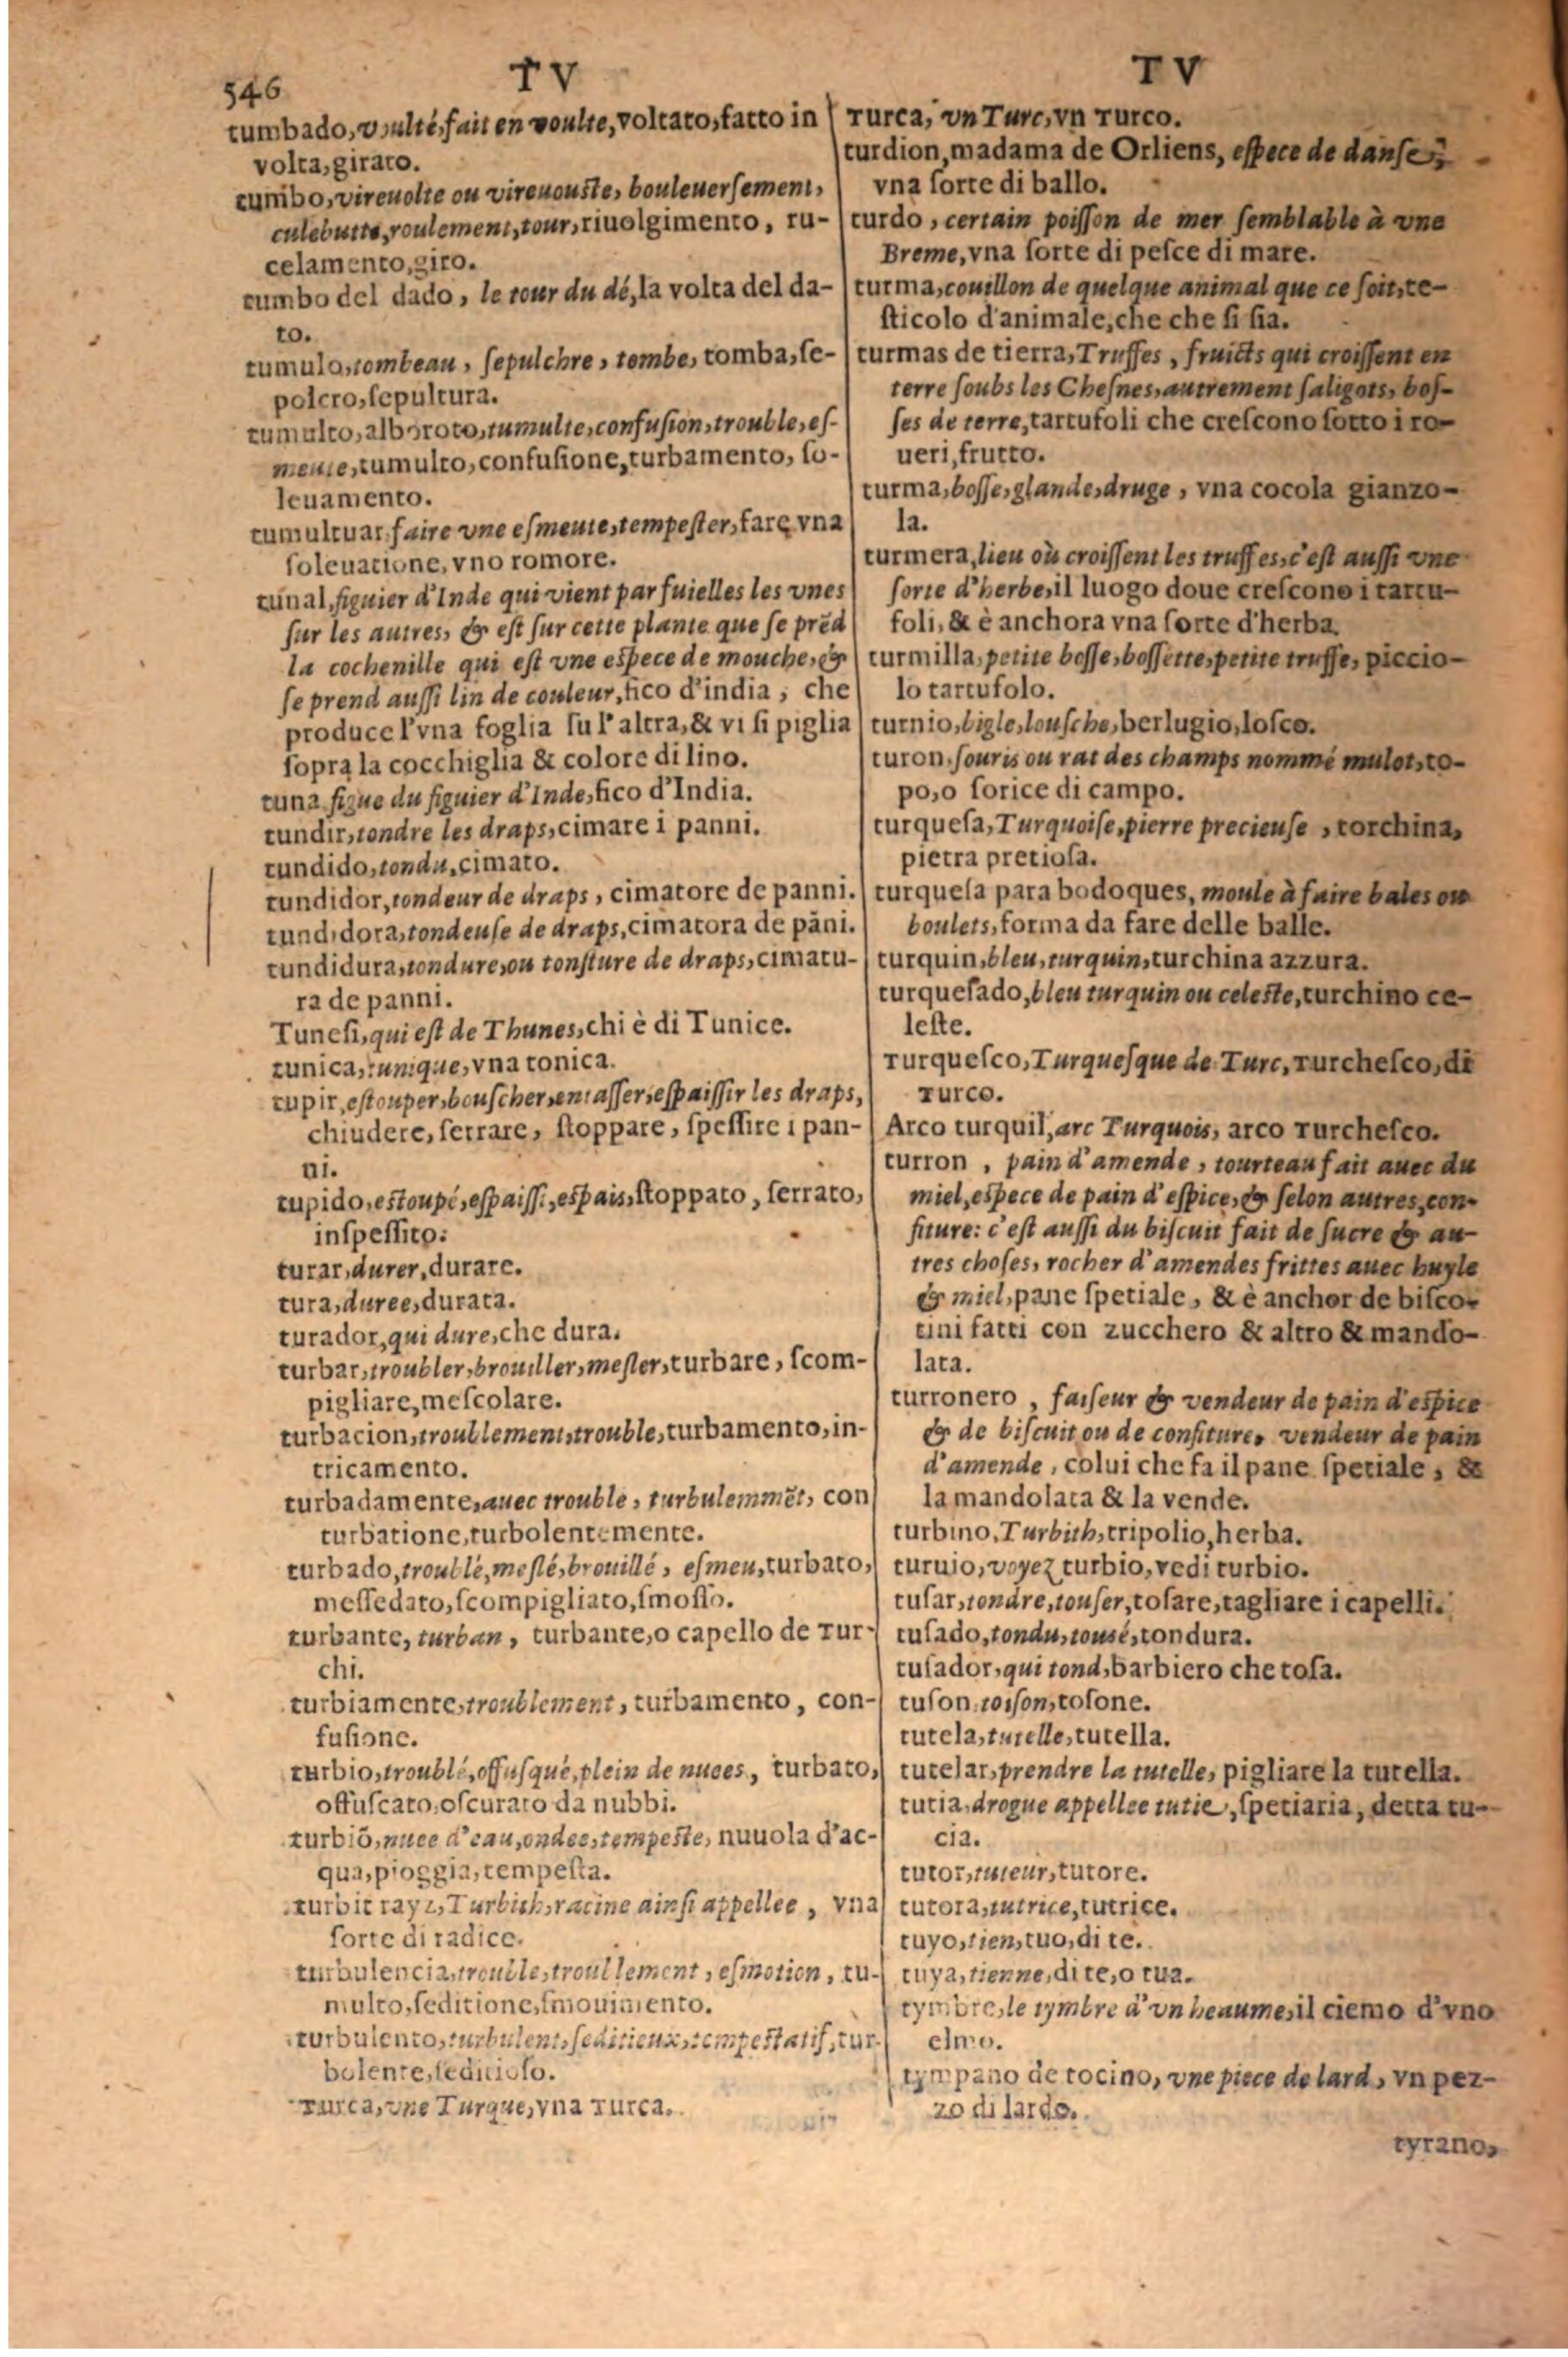 546
TV
TV
tumbado, voulté, fait en voulte, voltato, fatto in
volta, girato.
tumbo, virevolte ou virevouste, bouleuersement,
culebutte, roulement, tour, riuolgimento, ru-
celamento, giro.
tumbo del dado, le tour du dé, la volta del da-
to.
tumulo, tombeau, ſepulchre, tombe, tomba, ſe-
polcro, ſepultura.
tumulto, alboroto, tumulte, confuſion, trouble, eſ-
meute, tumulto, confuſione, turbamento, ſo-
leuamento.
tumultuar, faire vne eſmeute, tempeſter, fare vna
ſoleuatione, vno romore.
tunal, figuier d'Inde qui vient par fuielles les vnes
ſur les autres, & est ſur cette plante que ſe prẽd
la cochenille qui est vne espece de mouche, &
ſe prend auſſi lin de couleur, fico d'india, che
produce l'vna foglia ſu l'altra, & vi ſi piglia
ſopra la cocchiglia & colore di lino.
tuna figue du figuier d'Inde, fico d'India.
tundir, tondre les draps, cimare i panni.
tundido, tondu, cimato.
tundidor, tondeur de draps, cimatore de panni.
tundidora, tondeuſe de draps, cimatora de pāni.
tundidura, tondure, ou tonſture de draps, cimatu-
ra de panni.
Tuneſi, qui est de Thunes, chi è di Tunice.
tunica, tunique, vna tonica.
tupir, estouper, bouſcher, entaſſer, espaiſſir les draps,
chiudere, ſerrare, ſtoppare, ſpeſſire i pan-
ni.
tupido, estoupé, espaiſſi, espais, ſtoppato, ſerrato,
inſpeſſito.
turar, durer, durare.
tura, duree, durata.
turador, qui dure, che dura.
turbar, troubler, brouiller, meſler, turbare, ſcom-
pigliare, meſcolare.
turbacion, troublement, trouble, turbamento, in-
tricamento.
turbadamente, auec trouble, turbulemmẽt, con
turbatione, turbolentemente.
turbado, troublé, meſlé, brouillé, eſmeu, turbato,
meſſedato, ſcompigliato, ſmoſſo.
turbante, turban, turbante, o capello de Tur-
chi.
turbiamente, troublement, turbamento, con-
fuſione.
turbio, troublé, offuſqué, plein de nuees, turbato,
offuſcato, oſcurato da nubbi.
turbiõ, nuee d'eau, ondee, tempeste, nuuola d'ac-
qua, pioggia, tempeſta.
turbit rayz, Turbith, racine ainſi appellee, vna
ſorte di radice.
turbulencia, trouble, troublement, eſmotion, tu-
multo, ſeditione, ſmouimento.
turbulento, turbulent, ſeditieux, tempestatif, tur-
bolente, ſeditioſo.
Turca, vne Turque, vna Turca.
Turca, vn Turc, vn Turco.
turdion, madama de Orliens, eſpece de danſe,
vna ſorte di ballo.
turdo, certain poiſſon de mer ſemblable à vne
Breme, vna ſorte di peſce di mare.
turma, couillon de quelque animal que ce ſoit, te-
ſticolo d'animale, che che ſi ſia.
turmas de tierra, Truffes, fruicts qui croiſſent en
terre ſoubs les Cheſnes, autrement ſaligots, boſ-
ſes de terre, tartufoli che creſcono ſotto i ro-
ueri, frutto.
turma, boſſe, glande, druge, vna cocola gianzo-
la.
turmera, lieu où croiſſent les truffes, c'eſt auſſi vne
ſorte d'herbe, il luogo doue creſcono i tartu-
foli, & è anchora vna ſorte d'herba.
turmilla, petite boſſe, boſſette, petite truffe, piccio-
lo tartufolo.
turnio, bigle, louſche, berlugio, loſco.
turon, ſouris ou rat des champs nommé mulot, to-
po, o ſorice di campo.
turqueſa, Turquoiſe, pierre precieuſe, torchina,
pietra pretioſa.
turqueſa para bodoques, moule à faire bales ou
boulets, forma da fare delle balle.
turquin, bleu, turquin, turchina azzura.
turqueſado, bleu turquin ou celeste, turchino ce-
leſte.
Turqueſco, Turqueſque de Turc, Turcheſco, di
Turco.
Arco turquil, arc Turquois, arco Turcheſco.
turron, pain d'amende, tourteau fait auec du
miel, espece de pain d'eſpice, & ſelon autres, con-
fiture: c'eſt auſſi du biſcuit fait de ſucre & au-
tres choſes, rocher d'amendes frittes auec huyle
& miel, pane ſpetiale, & è anchor de biſco-
tini fatti con zucchero & altro & mando-
lata.
turronero, faiſeur & vendeur de pain d'eſpice
& de biſcuit ou de confiture, vendeur de pain
d'amende, colui che fa il pane ſpetiale, &
la mandolata & la vende.
turbino, Turbith, tripolio, herba.
turuio, voyez turbio, vedi turbio.
tuſar, tondre, touſer, toſare, tagliare i capelli.
tuſado, tondu, touſé, tondura.
tuſador, qui tond, barbiero che toſa.
tuſon, toiſon, toſone.
tutela, tutelle, tutella.
tutelar, prendre la tutelle, pigliare la tutella.
tutia, drogue appellee tutie, ſpetiaria, detta tu-
cia.
tutor, tuteur, tutore.
tutora, tutrice, tutrice.
tuyo, tien, tuo, di te.
tuya, tienne, di te, o tua.
tymbre, le tymbre d'vn heaume, il ciemo d'vno
elmo.
tympano de tocino, vne piece de lard, vn pez-
zo di lardo.
tyrano,